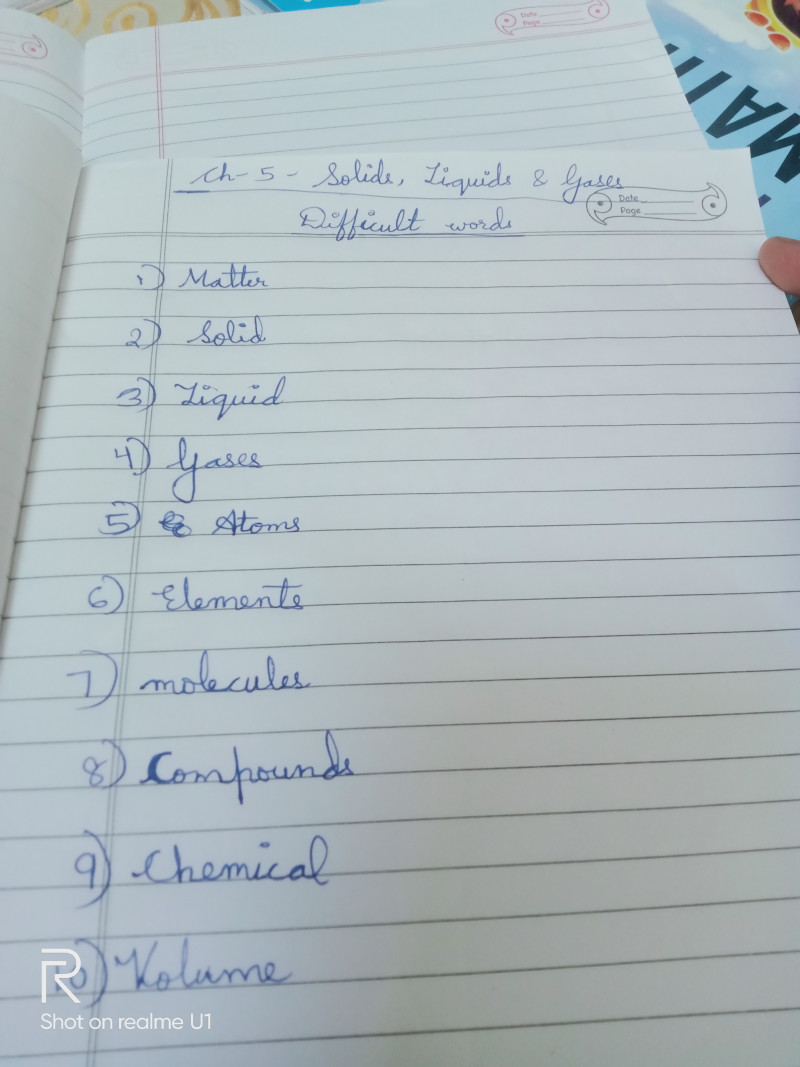 Date
Page
MATH
Ch-5 - Solids, Liquids & Gases
Date
Page
Difficult words
1) Matter
2) Solid
3) Liquid
4) Gases
5) Atoms
6) Elements
7) molecules
8) Compounds
9) Chemical
10) Volume
Shot on realme U1